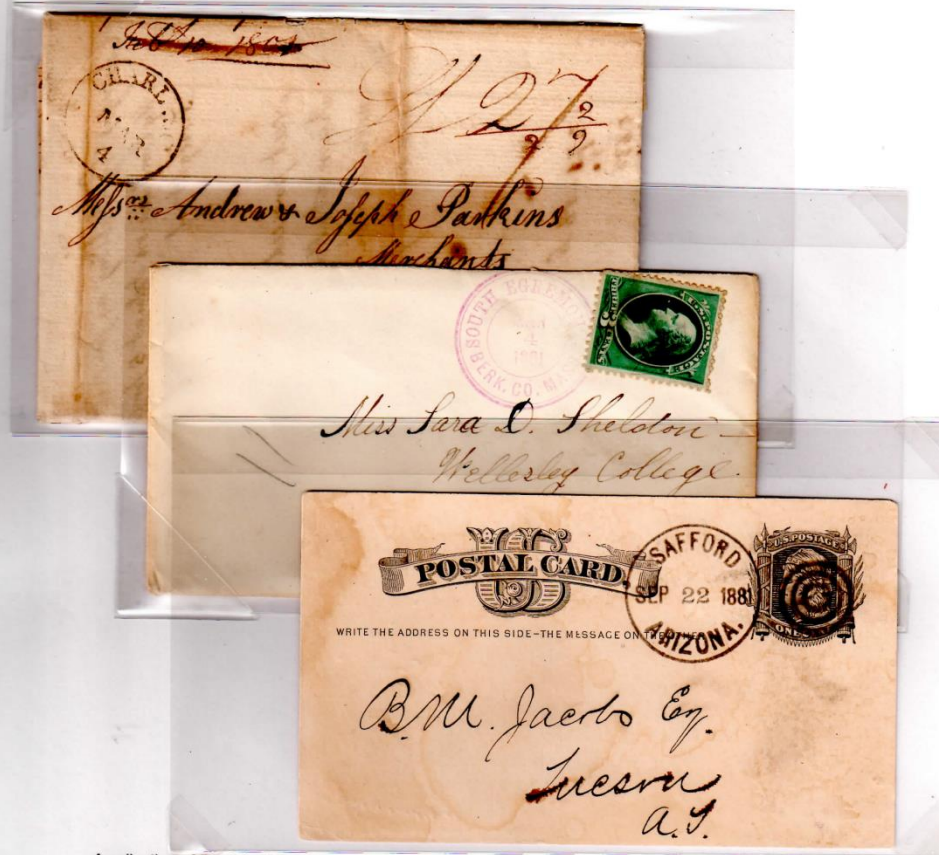 Feby 10 1801
CHARL
MAR
4
27
2
9
2
Messrs Andrew & Joseph Parkins
Merchants
SOUTH EGREMO
4
1881
BERK. CO. MA
Miss Sara D. Sheldon
Wellesley College.
US
POSTAL CARD.
WRITE THE ADDRESS ON THIS SIDE-THE MESSAGE ON
SAFFORD
SEP 22 1881
ARIZONA.
U.S. POSTAGE
ONE
B.M. Jacobs Esq.
Tucson
A.T.